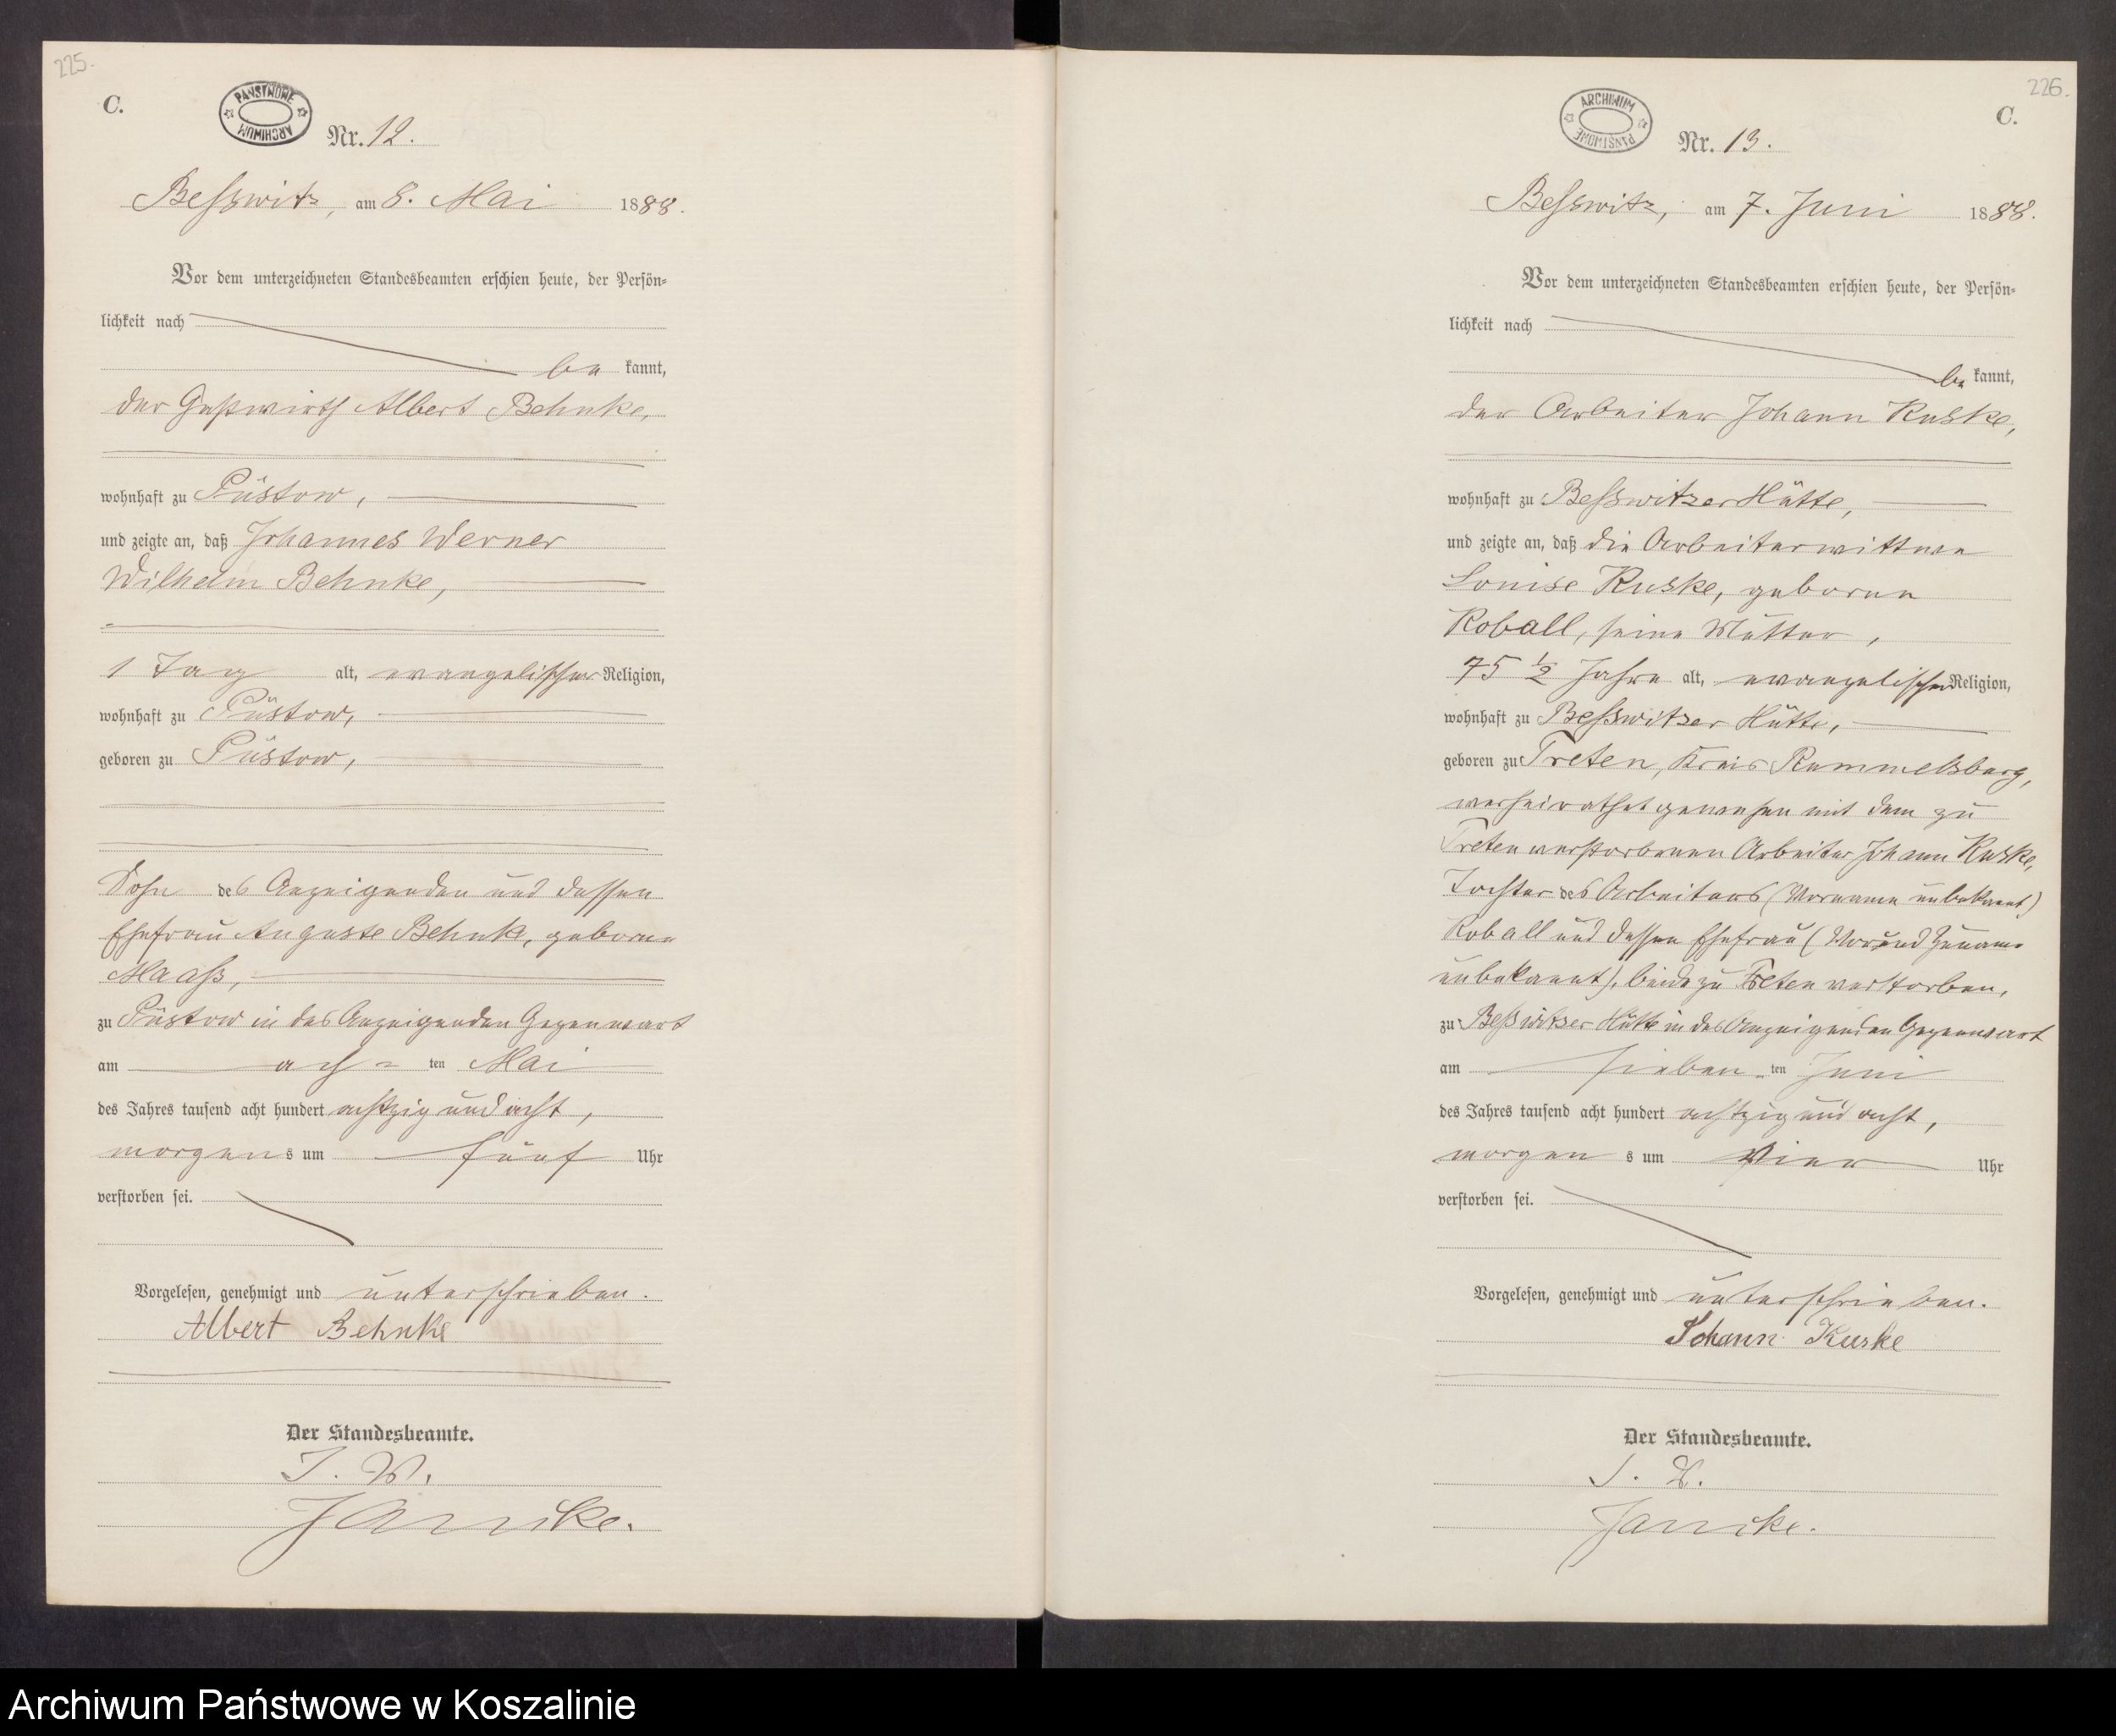 225.
C.
PAŃSTWOWE ARCHIWUM
Nr. 12.
Beßwitz, am 8. Mai 1888.
Vor dem unterzeichneten Standesbeamten erschien heute, der Persön-
lichkeit nach
be kannt,
der Gastwirth Albert Behnke,
wohnhaft zu Püstow,
und zeigte an, daß Johannes Werner
Wilhelm Behnke,
1 Tag alt, evangelischer Religion,
wohnhaft zu Püstow,
geboren zu Püstow,
Sohn des Anzeigenden und dessen
Ehefrau Auguste Behnke, geborene
Maaß,
zu Püstow in des Anzeigenden Gegenwart
am ach- ten Mai
des Jahres tausend acht hundert achtzig und acht,
morgens um fünf Uhr
verstorben sei.
Vorgelesen, genehmigt und unterschrieben.
Albert Behnke
Der Standesbeamte.
J. V.
Jancke.
226.
C.
ARCHIWUM PAŃSTWOWE
Nr. 13.
Beßwitz, am 7. Juni 1888.
Vor dem unterzeichneten Standesbeamten erschien heute, der Persön-
lichkeit nach
be kannt,
der Arbeiter Johann Kuske,
wohnhaft zu Beßwitzer Hütte,
und zeigte an, daß die Arbeiterwittwe
Louise Kuske, geborene
Koball, seine Mutter,
75 1/2 Jahre alt, evangelischer Religion,
wohnhaft zu Beßwitzer Hütte,
geboren zu Treten, Kreis Rummelsburg,
verheirathet gewesen mit dem zu
Treten verstorbenen Arbeiter Johann Kuske,
Tochter des Arbeiters (Vorname unbekannt)
Koball und dessen Ehefrau (Vor und Zuname
unbekannt), beide zu Treten verstorben,
zu Beßwitzer Hütte in des Anzeigenden Gegenwart
am sieben- ten Juni
des Jahres tausend acht hundert achtzig und acht,
morgen s um vier Uhr
verstorben sei.
Vorgelesen, genehmigt und unterschrieben.
Johann Kuske
Der Standesbeamte.
J. V.
Jancke.
Archiwum Państwowe w Koszalinie